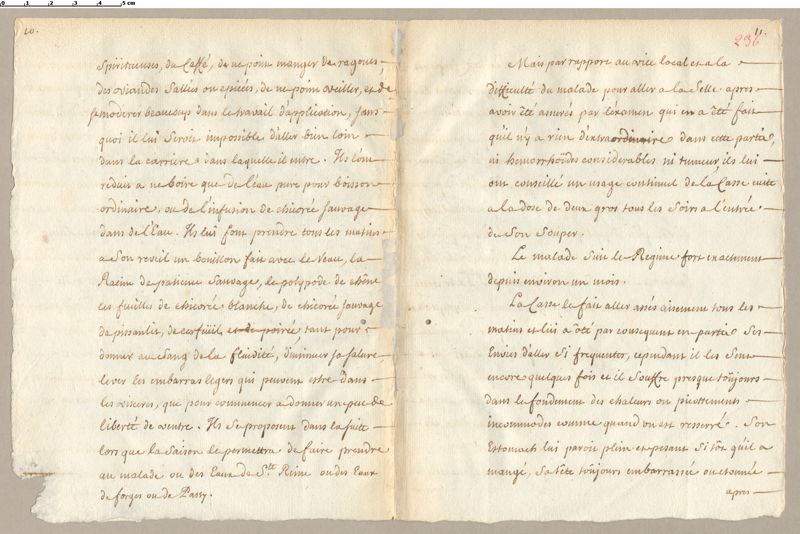 10.
Spiritueuses, du Caffé, de ne point manger de ragouts
des viandes Sallées ou epicées, de ne point veiller, et de
se moderer beaucoup dans le travail d'application, sans
quoi il lui seroit impossible d'aller bien loin
dans la carriere dans laquelle il entre. Ils l'ont
reduit a ne boire que de l'eau pure pour boisson
ordinaire, ou de l'infusion de chicorée sauvage
dans de l'Eau. Ils lui font prendre tous les matins
a son reveil un bouillon fait avec le veau, la
Racine de patience sauvage, le polypode de chêne
les fuilles de chicorée blanche, de chicorée sauvage
de pissanlit, de cerfüil et de poirée, tant pour
donner au sang de la fluidité, diminuer sa salure
lever les embarras legers qui peuvent estre dans
les visceres, que pour commencer a donner un peu de
liberté de ventre. Ils se proposent dans la suite
lors que la saison le permettra de faire prendre
au malade ou des Eaux de Ste Reine ou des Eaux
de forges ou de Passy.
11.
236
Mais par rapport au vice local et a la
difficulté du malade pour aller a la selle apres
avoir été assurés par l'examen qui en a été fait
qu'il n'y a rien d'extraordinaire dans cette partie,
ni hémorrhoïdes considerables ni tumeur ils lui
ont conseillé un usage continuel de la Casse cuite
a la dose de deux gros tous les soirs a l'entrée
de son souper.
Le malade suit le Regime fort exactement
depuis environ un mois.
La Casse le fait aller assés aisement tous les
matins et lui a ôté par consequent en partie ses
Envies d'aller si frequentes, cependant il les sent
encore quelques fois et il souffre presque toûjours
dans le fondement des chaleurs ou picottements
incommodes comme quand on est resserré. Son
Estomach lui paroit plein et pesant si tôt qu'il a
mangé, sa tête toûjours embarrassée ou etonnée
apres